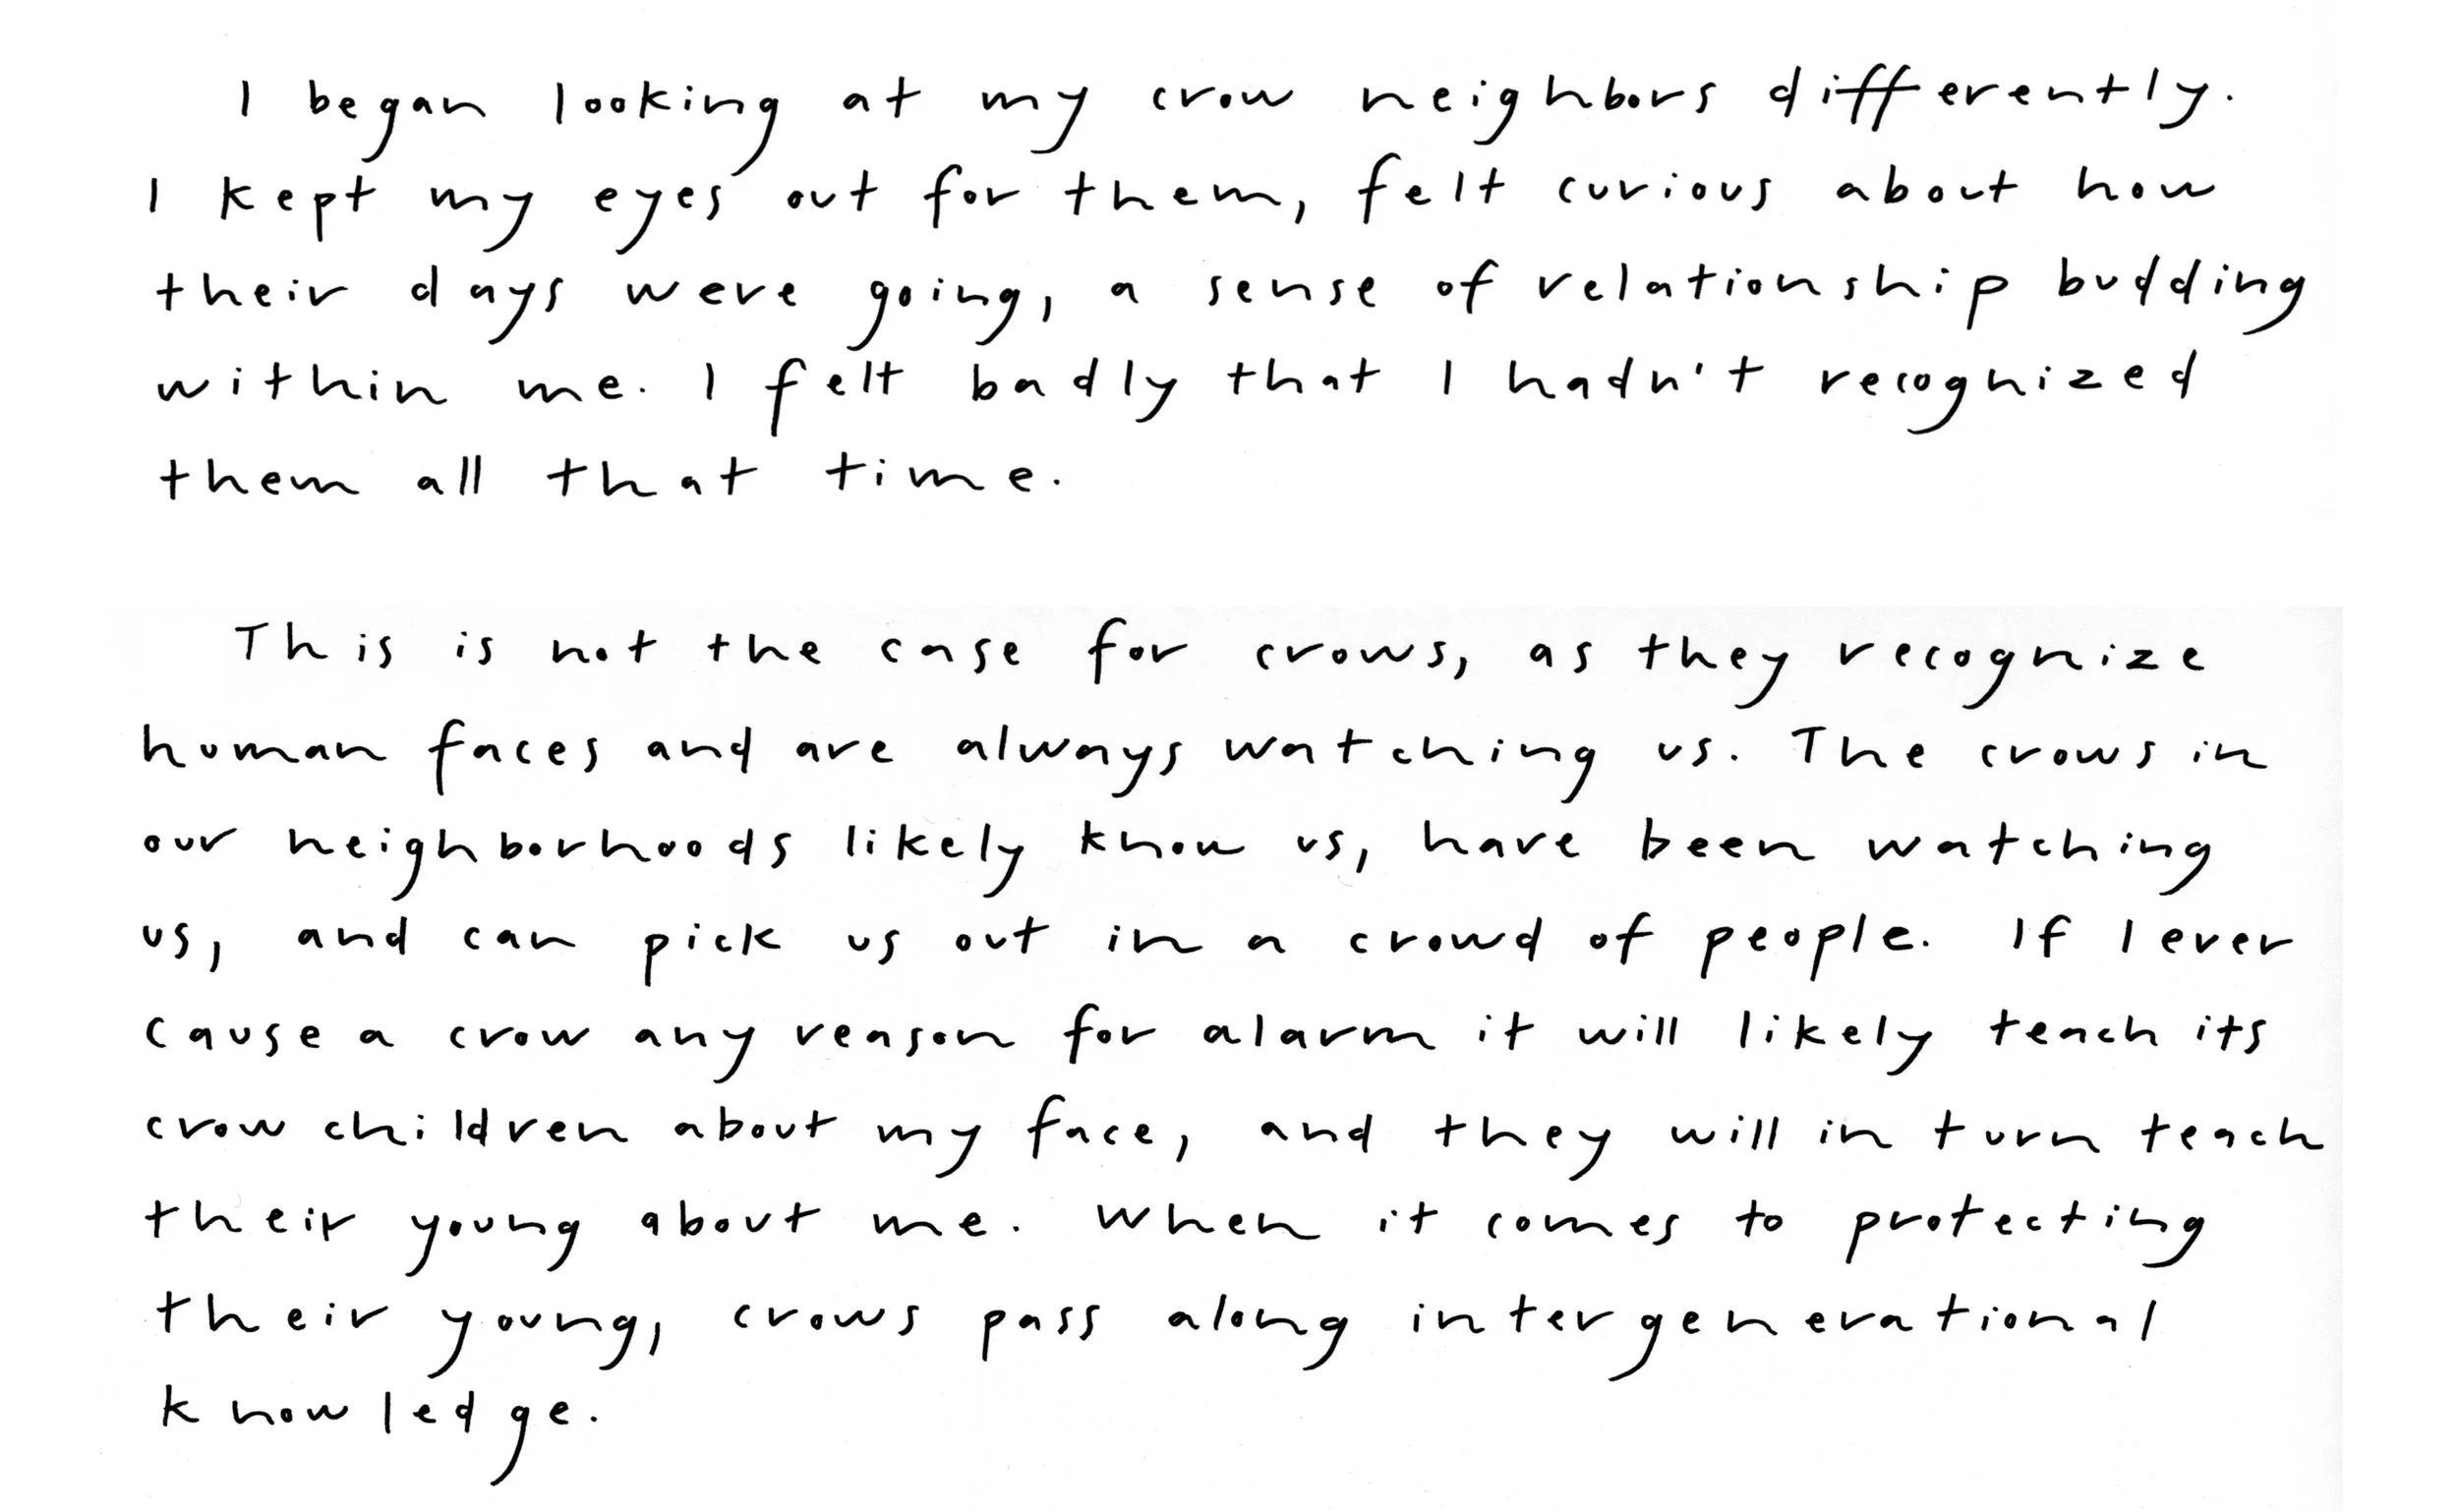 I began looking at my crow neighbors differently.
I kept my eyes out for them, felt curious about how
their days were going, a sense of relationship budding
within me. I felt badly that I hadn't recognized
them all that time.
This is not the case for crows, as they recognize
human faces and are always watching us. The crows in
our neighborhoods likely know us, have been watching
us, and can pick us out in a crowd of people. If I ever
cause a crow any reason for alarm it will likely teach its
crow children about my face, and they will in turn teach
their young about me. When it comes to protecting
their young, crows pass along intergenerational
knowledge.